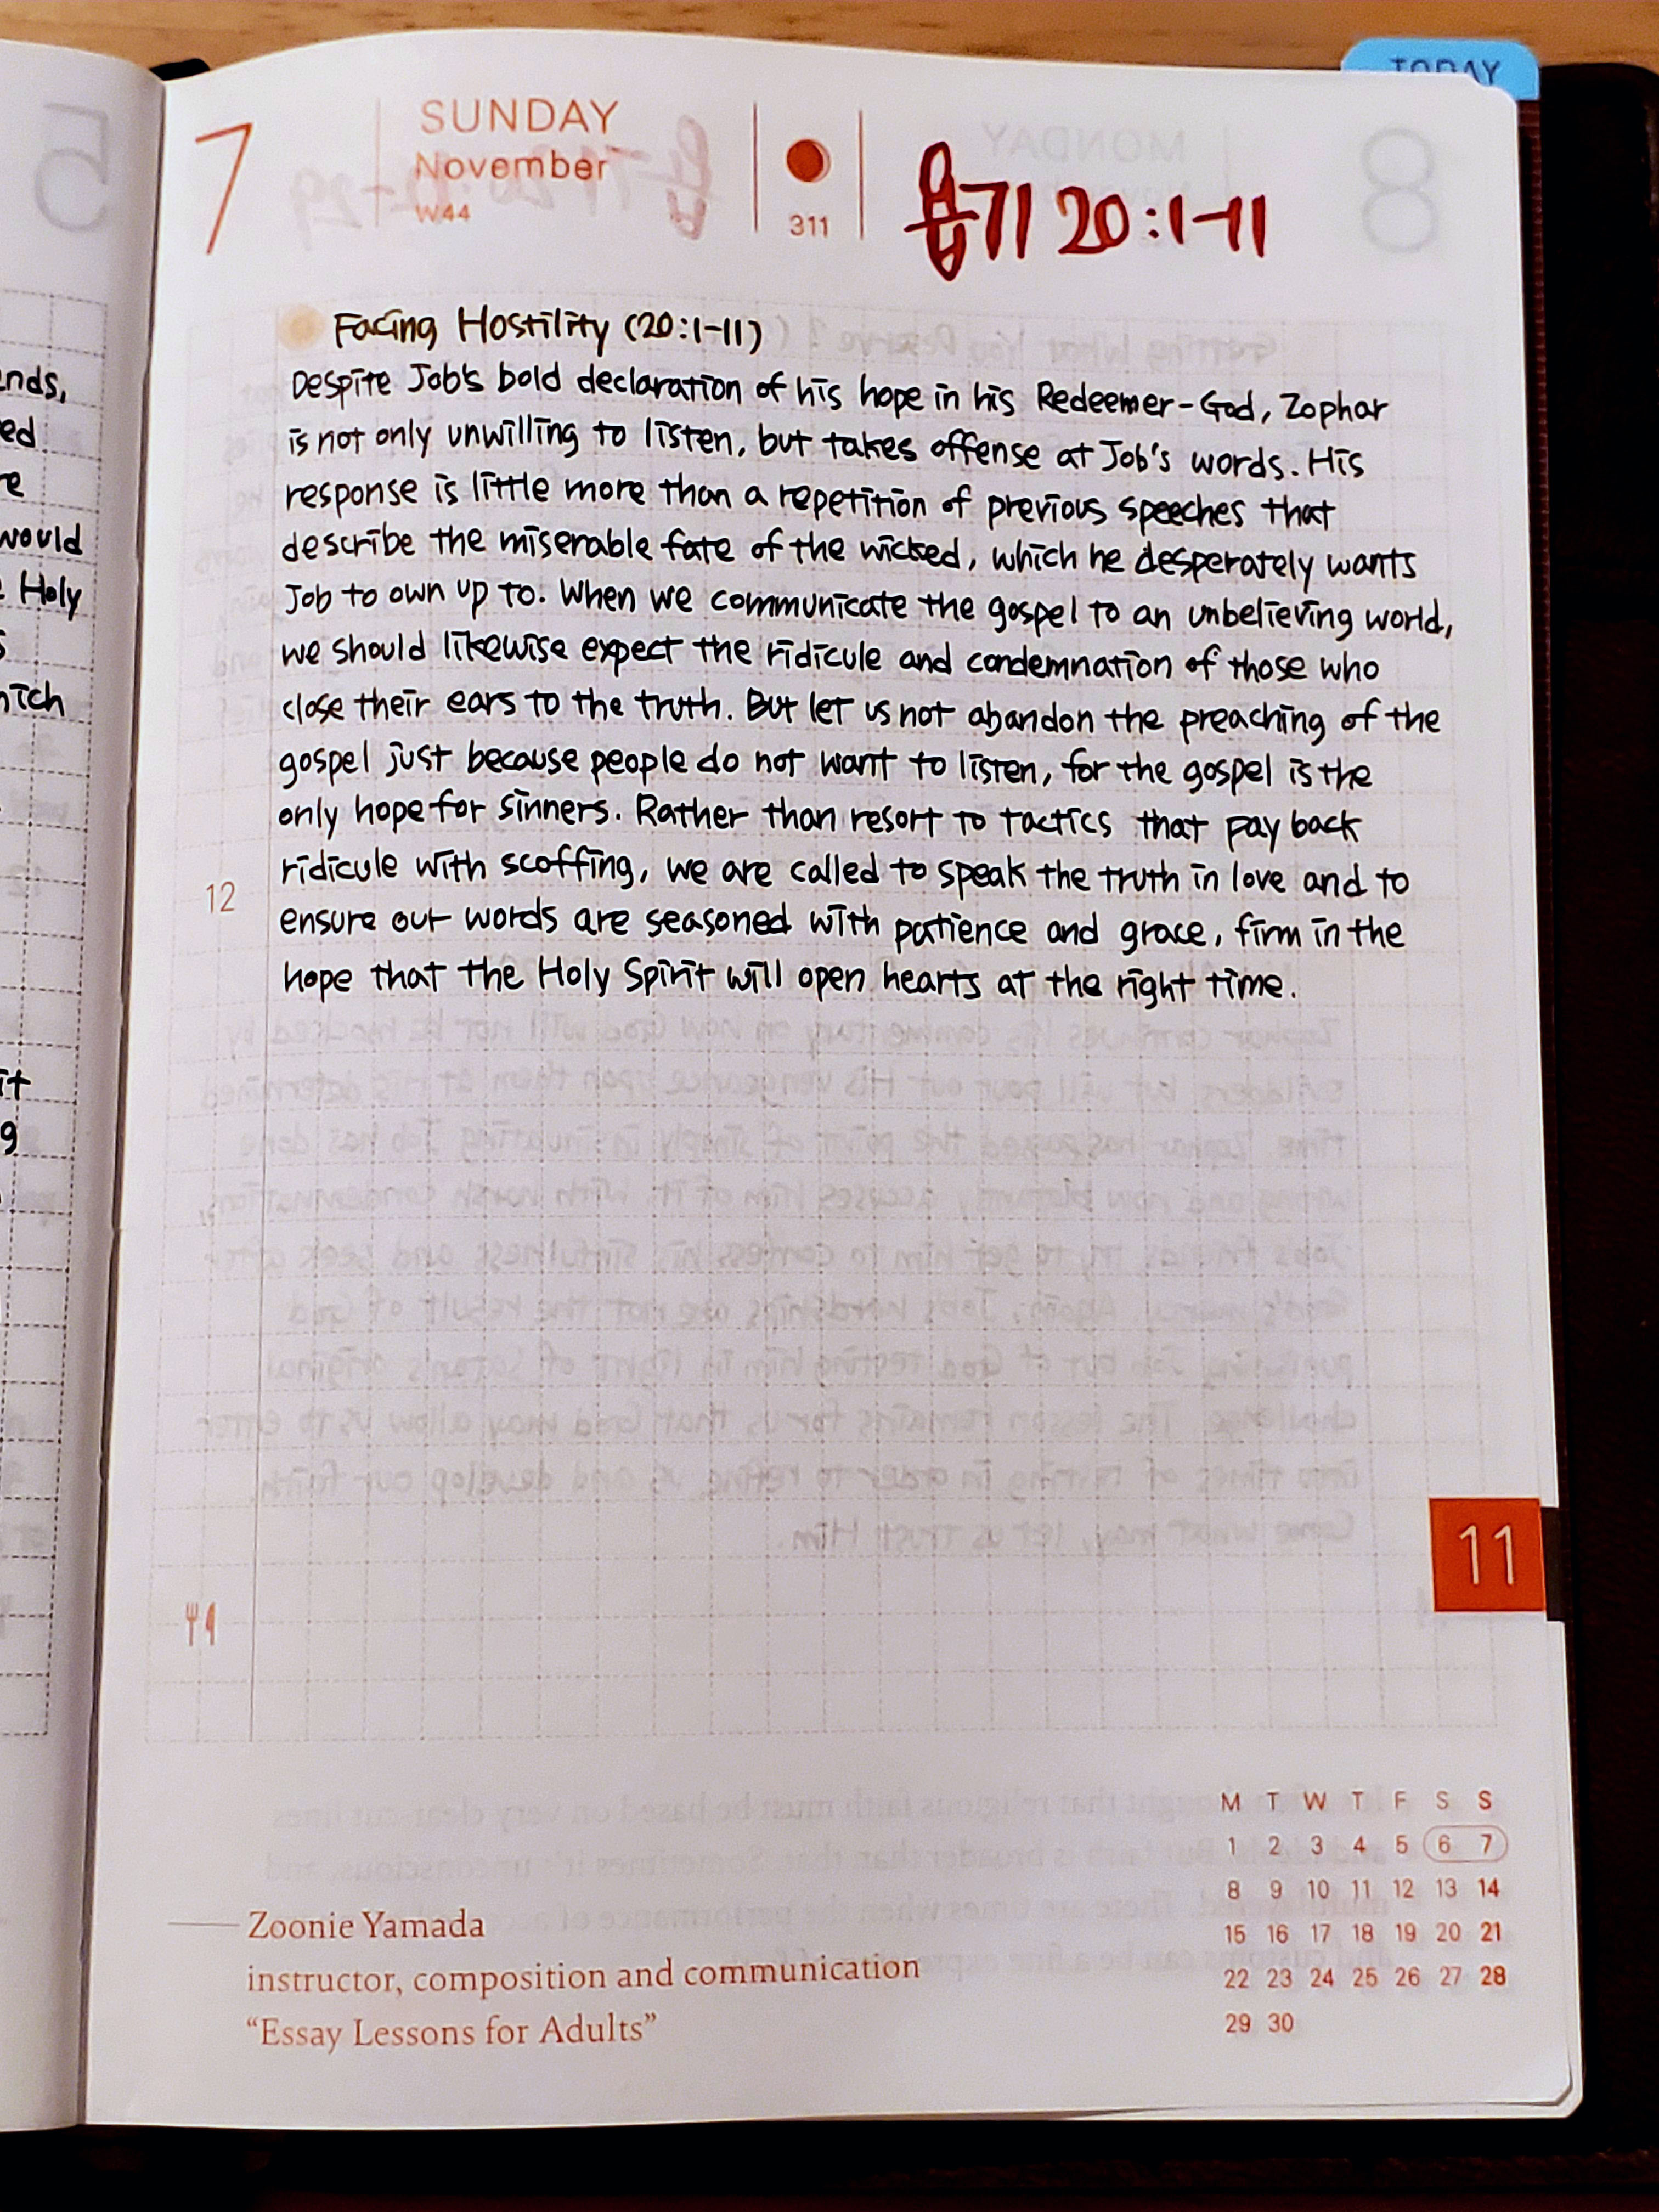 TODAY
7
SUNDAY
November
W44
311
욥기 20:1-11
Facing Hostility (20:1-11)
Despite Job's bold declaration of his hope in his Redeemer-God, Zophar
is not only unwilling to listen, but takes offense at Job's words. His
response is little more than a repetition of previous speeches that
describe the miserable fate of the wicked, which he desperately wants
Job to own up to. When we communicate the gospel to an unbelieving world,
we should likewise expect the ridicule and condemnation of those who
close their ears to the truth. But let us not abandon the preaching of the
gospel just because people do not want to listen, for the gospel is the
only hope for sinners. Rather than resort to tactics that pay back
ridicule with scoffing, we are called to speak the truth in love and to
12
ensure our words are seasoned with patience and grace, firm in the
hope that the Holy Spirit will open hearts at the right time.
11
M T W T F S S
1 2 3 4 5 6 7
8 9 10 11 12 13 14
15 16 17 18 19 20 21
22 23 24 25 26 27 28
29 30
Zoonie Yamada
instructor, composition and communication
“Essay Lessons for Adults”
5
nds,
ed
would
Holy
it